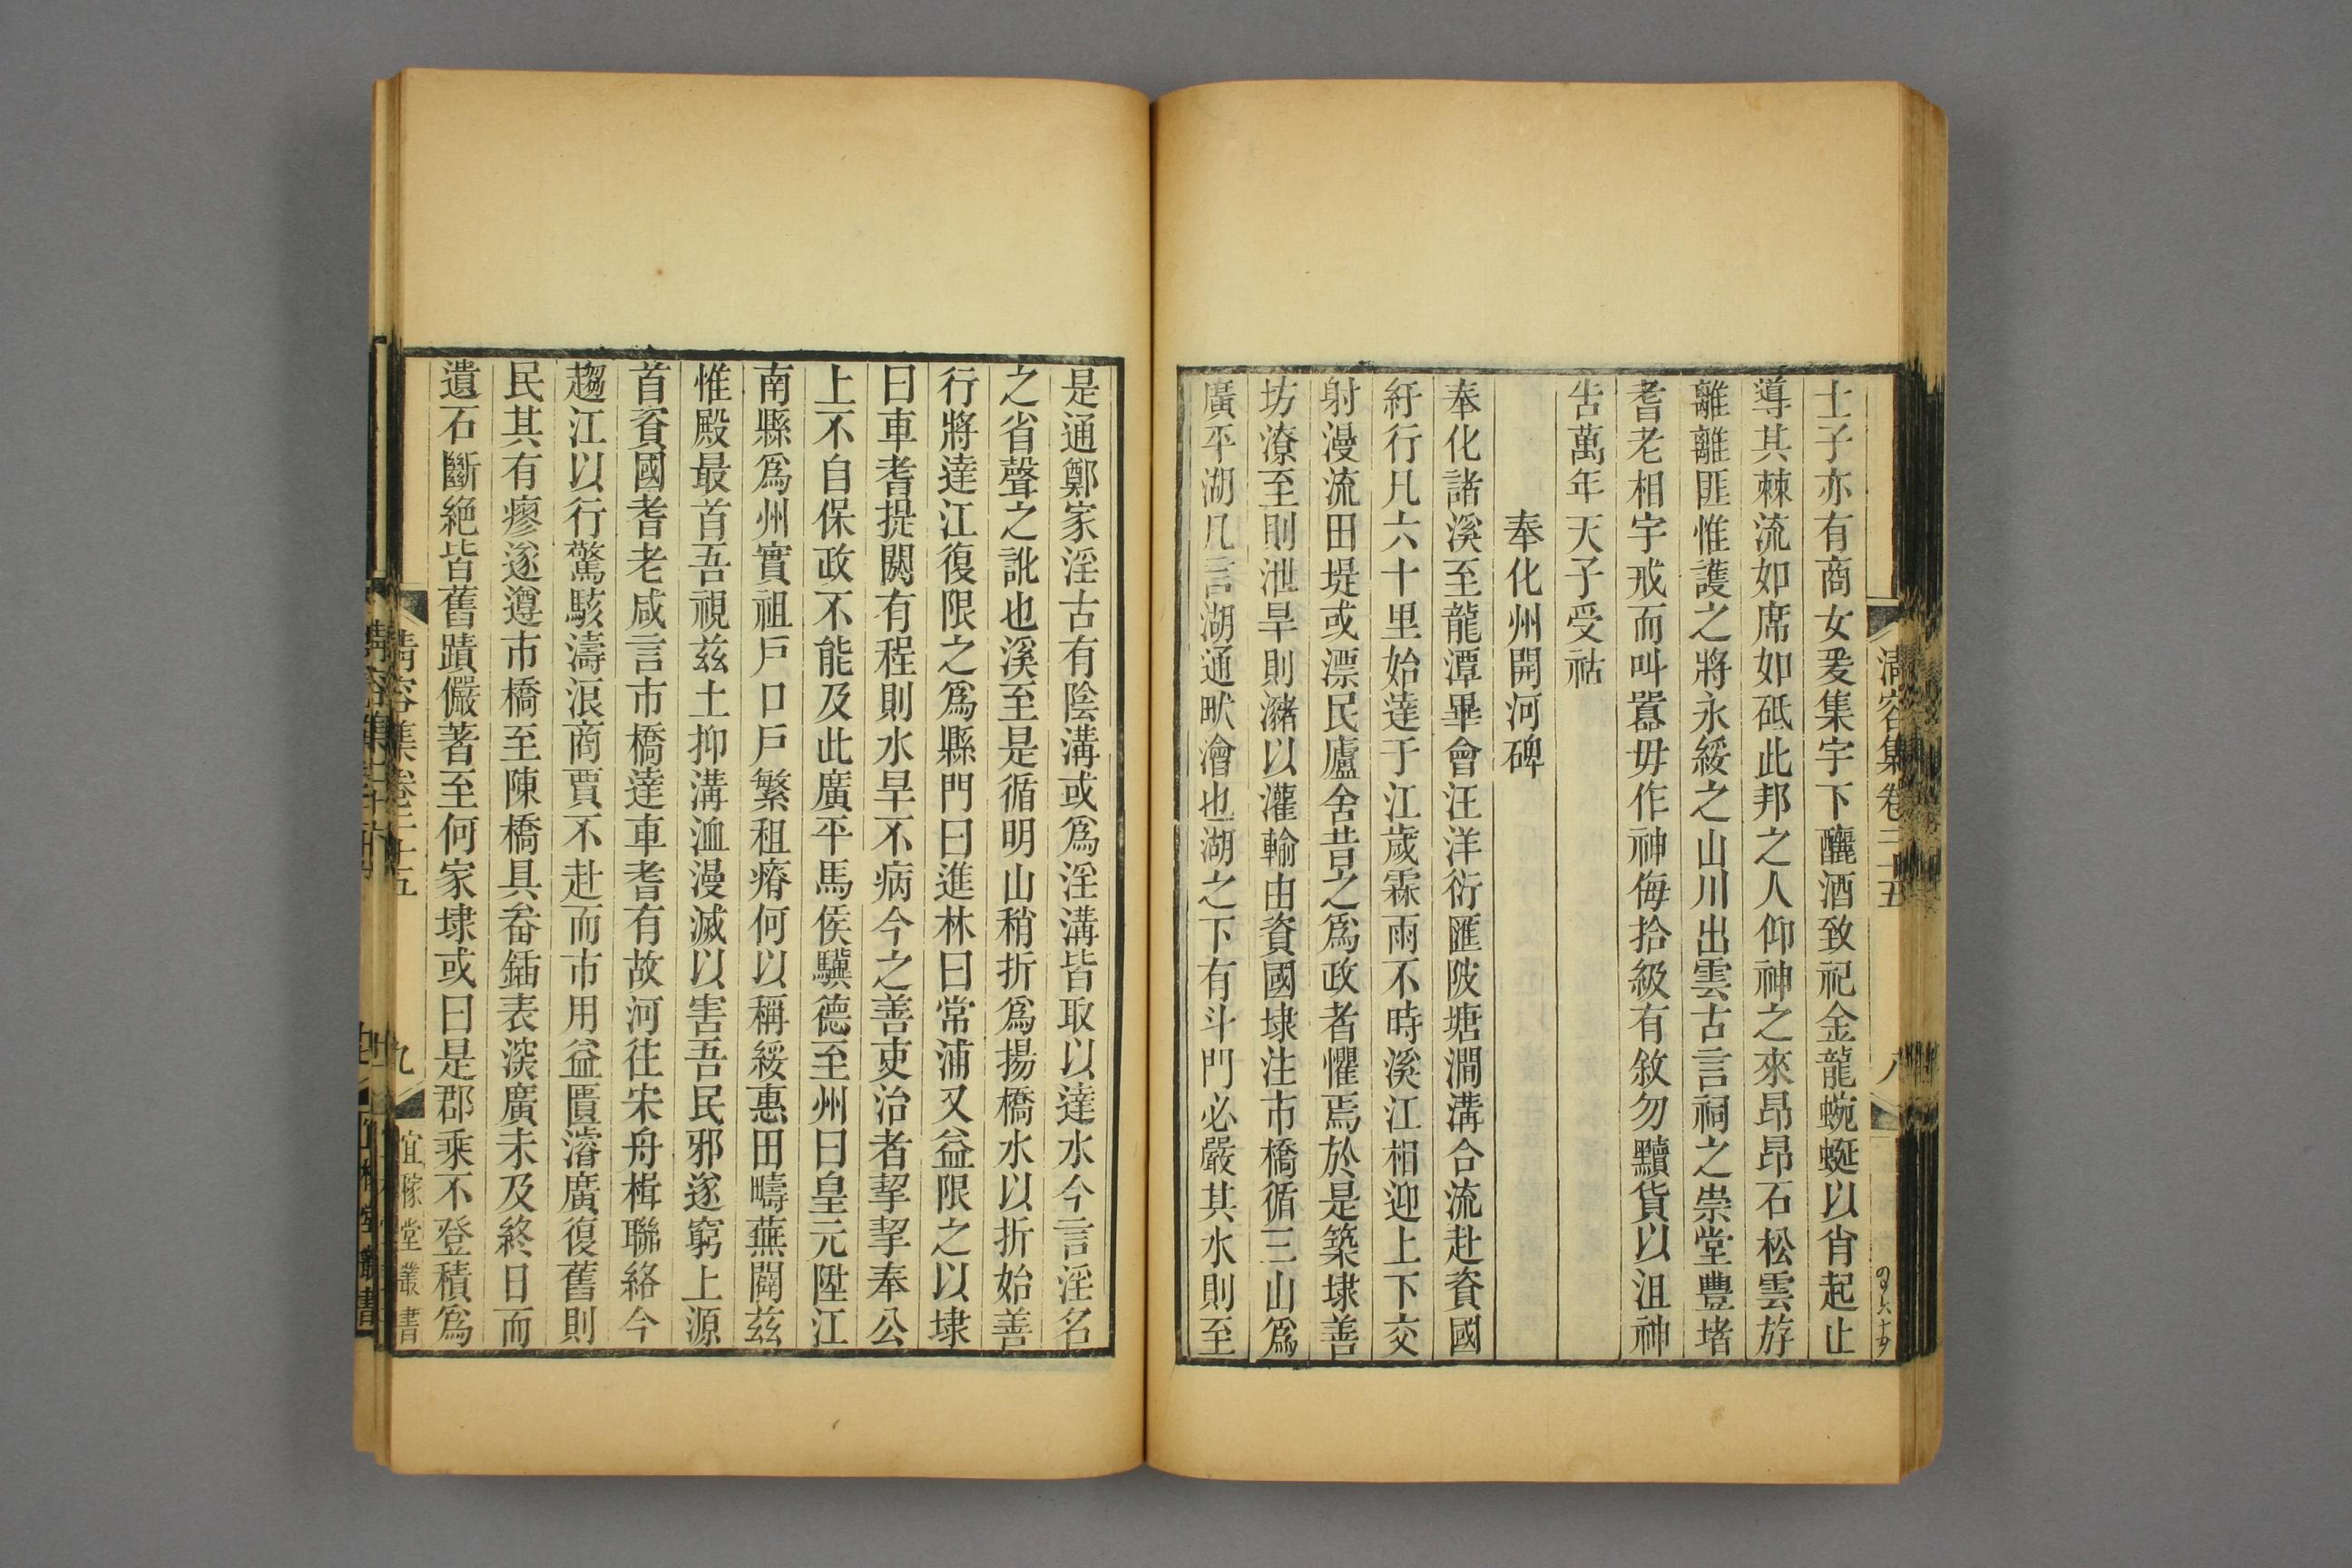 清容集卷二十五
八
士子亦有商女爰集宇下釃酒致祀金龍蜿蜒以肯起止
導其棘流如席如砥此邦之人仰神之來昂昂石松雲斿
離離匪惟護之將永綏之山川出雲古言祠之崇堂豐堵
耆老相宇戒而叫囂毋作神侮拾級有敘勿黷貨以沮神
吿萬年天子受祜
奉化州開河碑
奉化諸溪至龍潭畢會汪洋衍匯陂塘澗溝合流赴資國
紆行凡六十里始達于江歲霖雨不時溪江相迎上下交
射漫流田堤或漂民廬舍昔之爲政者懼焉於是築埭善
坊潦至則泄旱則瀦以灌輸由資國埭注市橋循三山爲
廣平湖凡言湖通畎澮也湖之下有斗門必嚴其水則至
是通鄭家淫古有陰溝或爲淫溝皆取以達水今言淫名
之省聲之訛也溪至是循明山稍折爲揚橋水以折始善
行將達江復限之爲縣門曰進林曰常浦又益限之以埭
曰車耆提閼有程則水旱不病今之善吏治者挈挈奉公
上不自保政不能及此廣平馬侯驥德至州曰皇元陞江
南縣爲州實祖戶口戶繁租瘠何以稱綏惠田疇蕪闢茲
惟殿最首吾視茲土抑溝洫漫滅以害吾民邪遂窮上源
首資國耆老咸言市橋達車耆有故河往宋舟楫聯絡今
趨江以行驚駭濤浪商賈不赴而市用益匱濬廣復舊則
民其有瘳遂遵市橋至陳橋具畚鍤表深廣未及終日而
遺石斷絶皆舊蹟儼著至何家埭或曰是郡乘不登積爲
清容集卷二十五
九
宜稼堂叢書